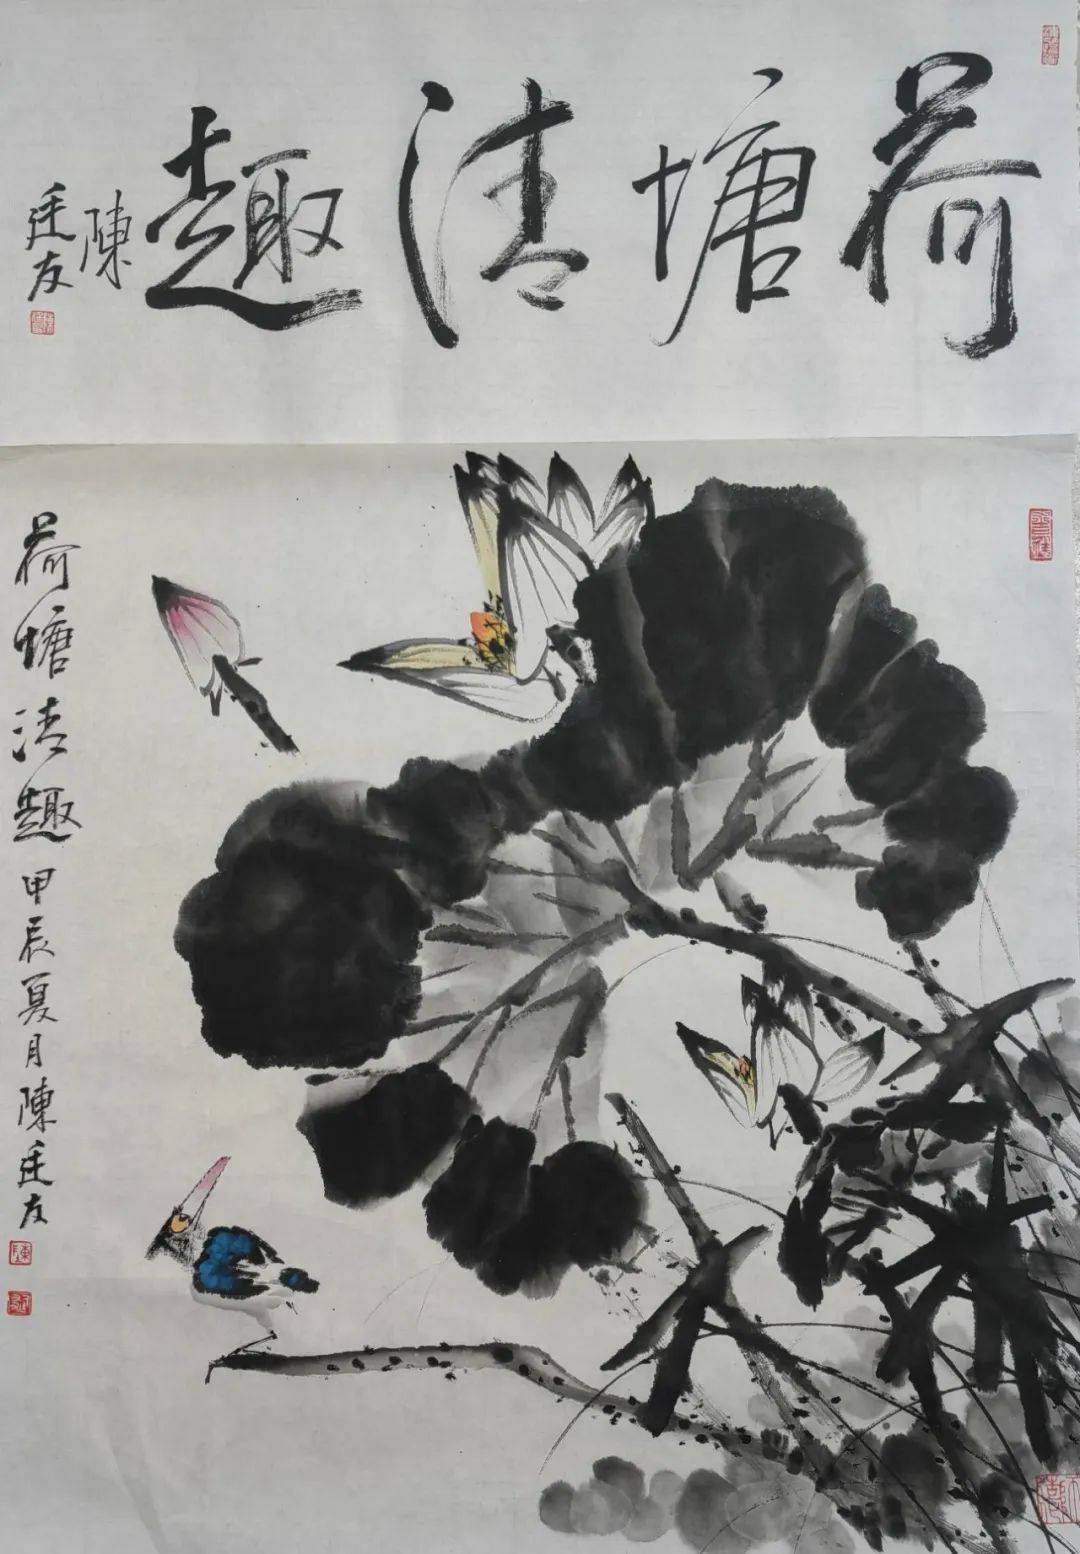 荷塘清趣
陳
廷友
荷塘清趣 甲辰夏月 陳廷友
陳